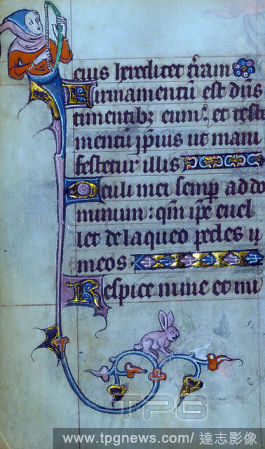 eius hereditet terram
Firmamentum est dns
timentibz eum: et testa
mentū ipius ut mani
festetur illis
Oculi mei semp ad do
minum: qm ipe euel
let de laqueo pedes
meos
Respice in me et mi
TPG
www.tpgnews.com/ 達志影像